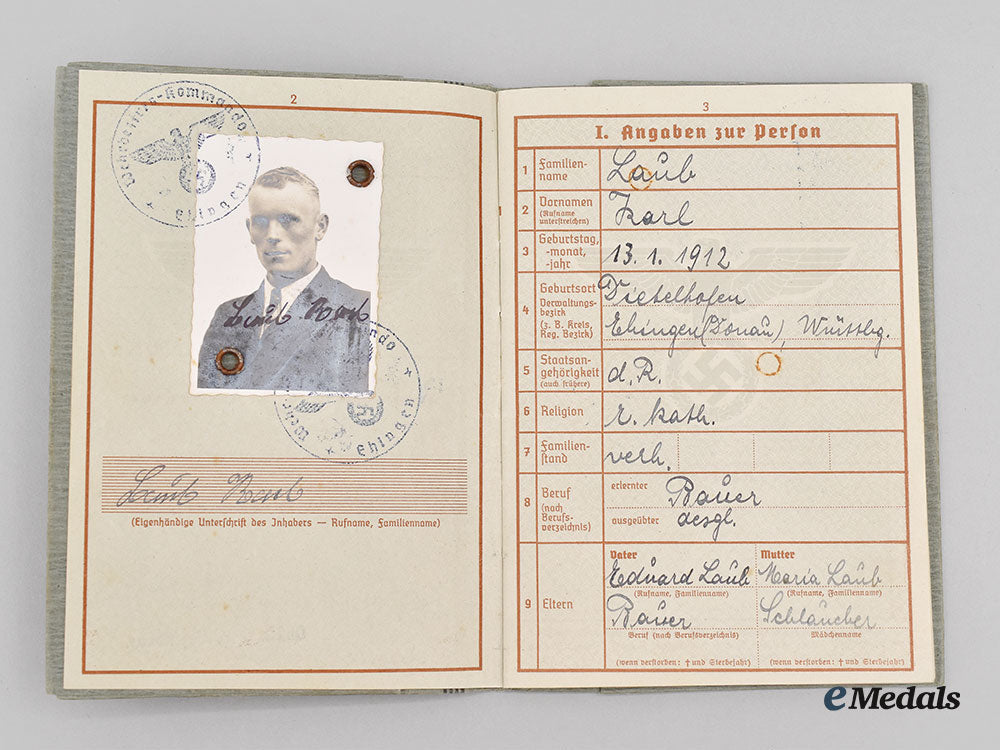 2
Wehrbezirks-Kommando
Ehingen
Laub Karl
Ehingen
Laub Karl
(Eigenhändige Unterschrift des Inhabers — Rufname, Familienname)
3
I. Angaben zur Person
1 Familien-
name
Laub
2 Vornamen
(Rufname
unterstreichen)
Karl
3 Geburtstag,
-monat,
-jahr
13. 1. 1912
4 Geburtsort
Verwaltungs-
bezirk
(z. B. Kreis,
Reg. Bezirk)
Dietelhofen
Ehingen (Donau), Württbg.
5 Staatsan-
gehörigkeit
(auch frühere)
d. R.
6 Religion
r. kath.
7 Familien-
stand
verh.
8 Beruf
(nach
Berufs-
verzeichnis)
erlernter Bauer
ausgeübter desgl.
9 Eltern
Vater Mutter
Eduard Laub Maria Laub
(Rufname, Familienname) (Rufname, Familienname)
Bauer
Beruf (nach Berufsverzeichnis) Mädchenname
(wenn verstorben: † und Sterbejahr) (wenn verstorben: † und Sterbejahr)
eMedals